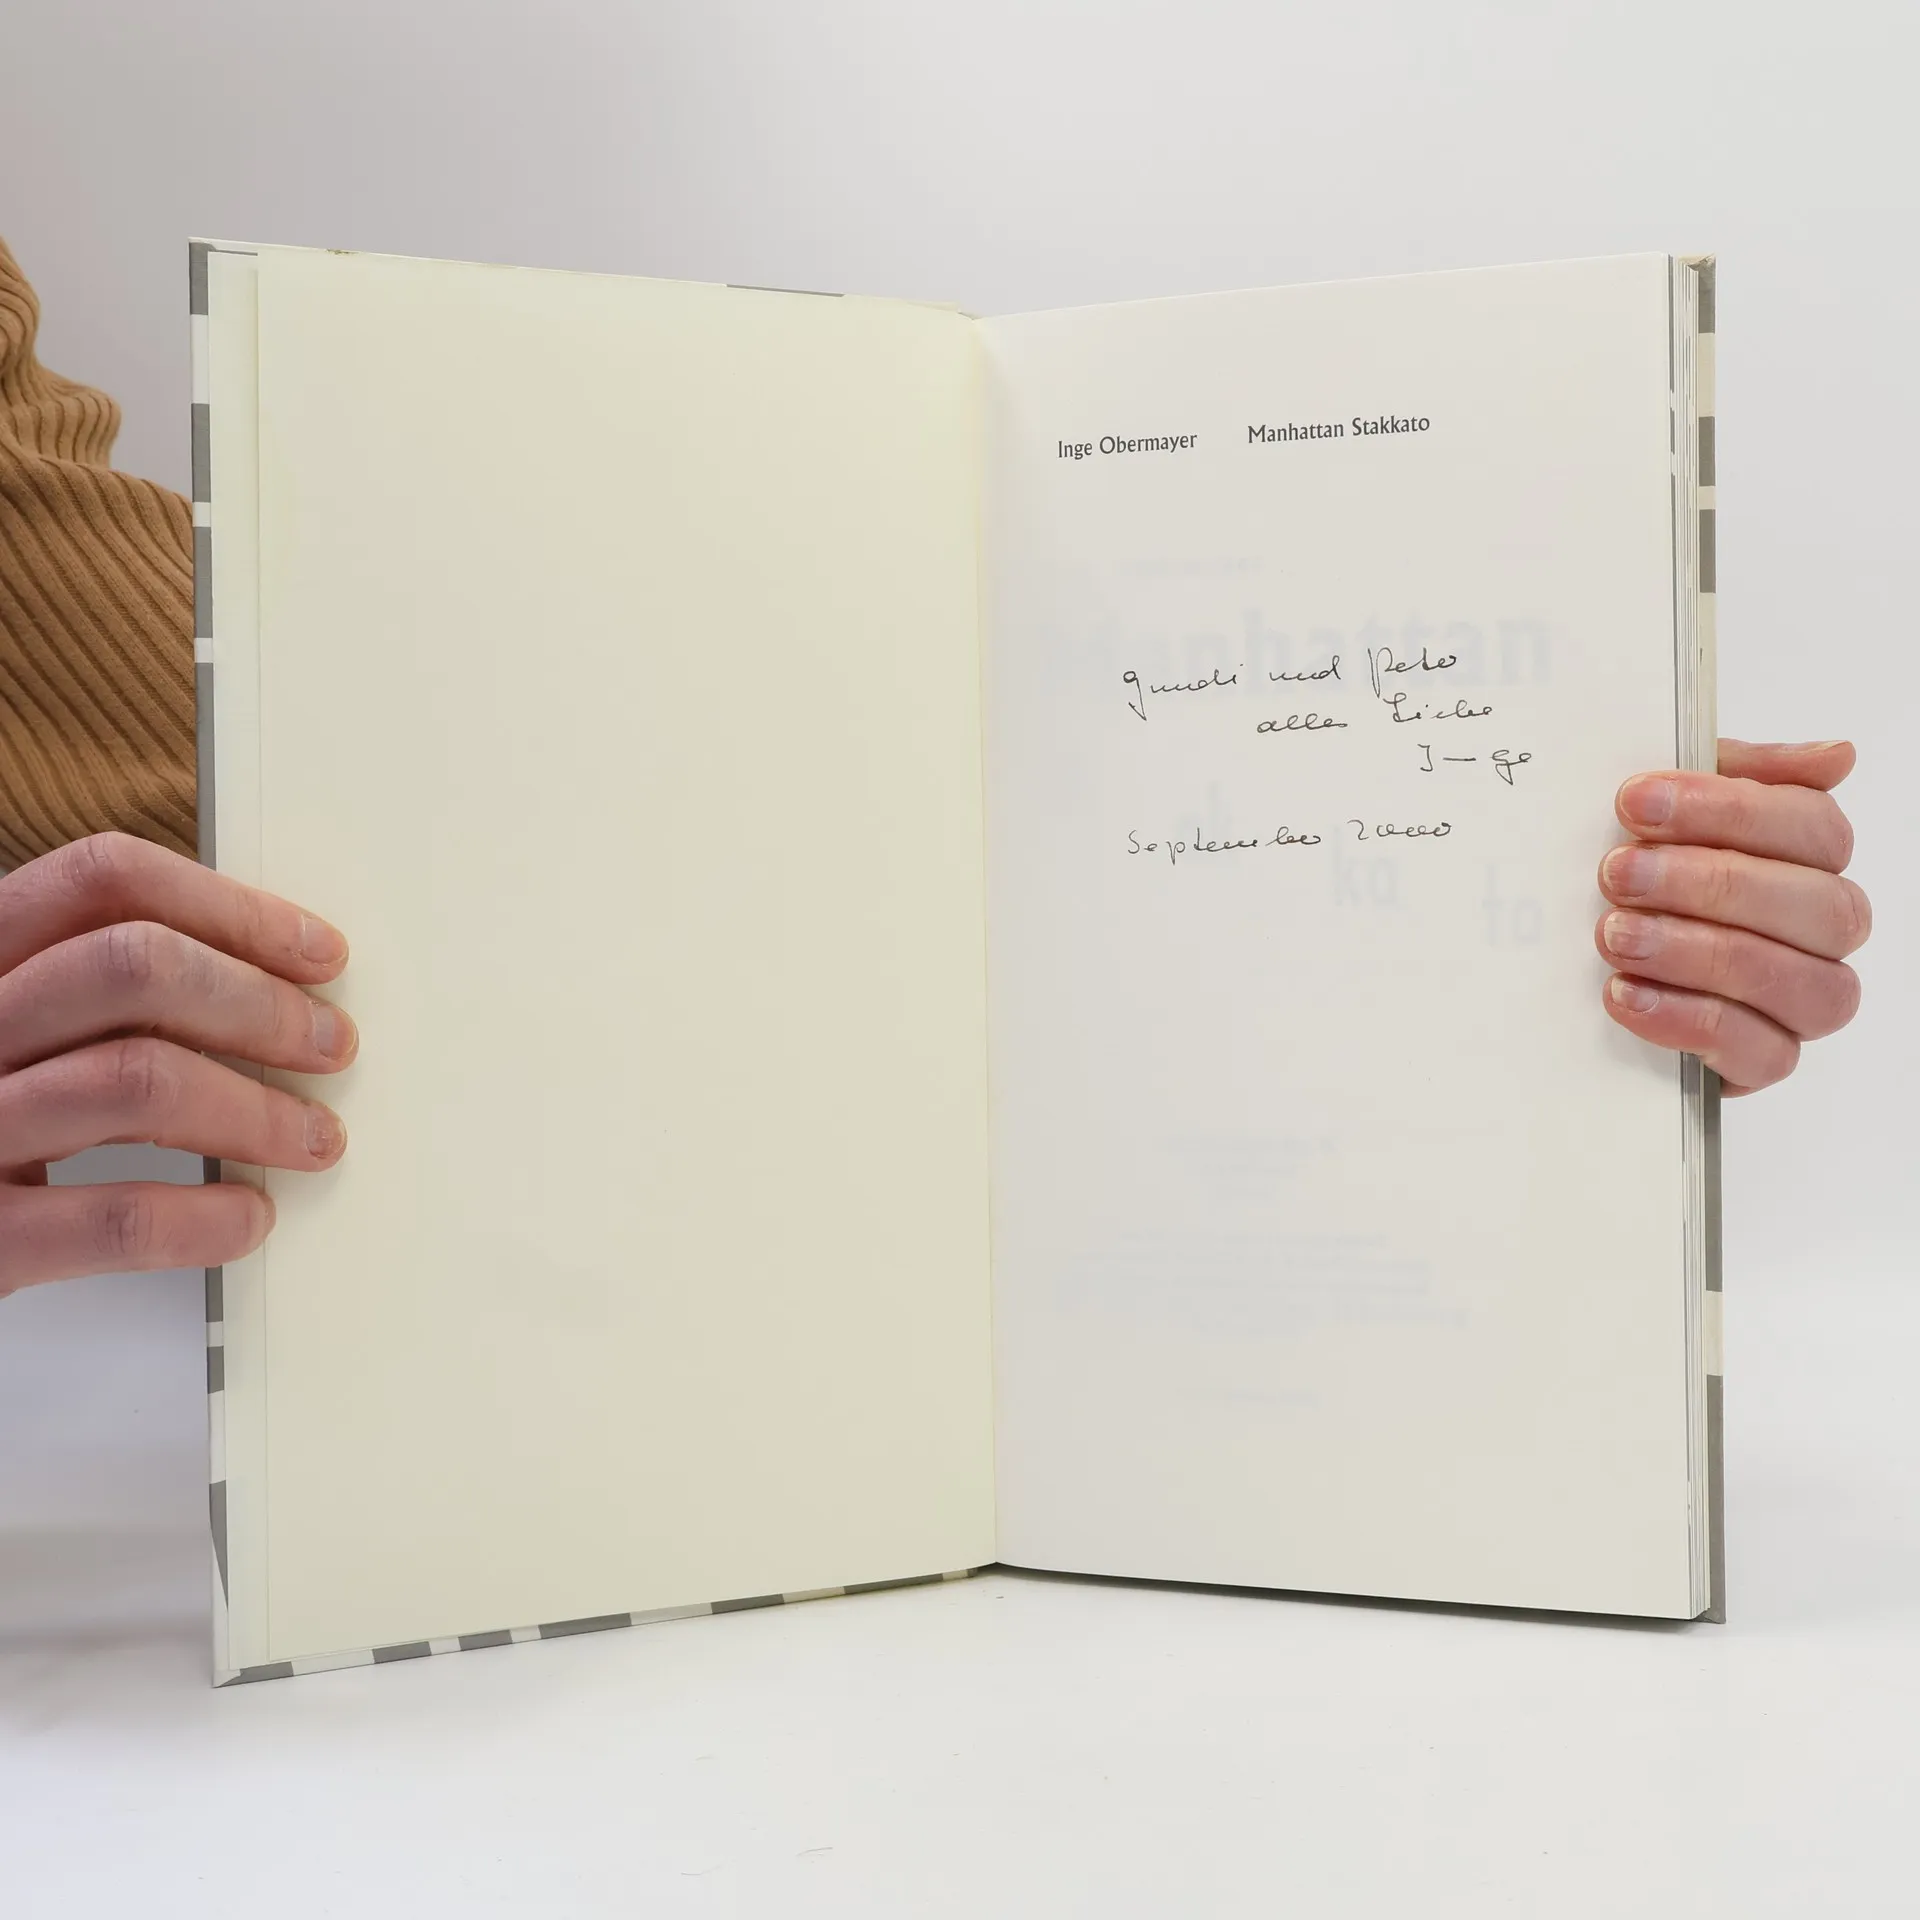 Inge Obermayer Manhattan Stakkato
Gundi und Peter
alles Liebe
Inge
September 2000
Manhattan
ka
to